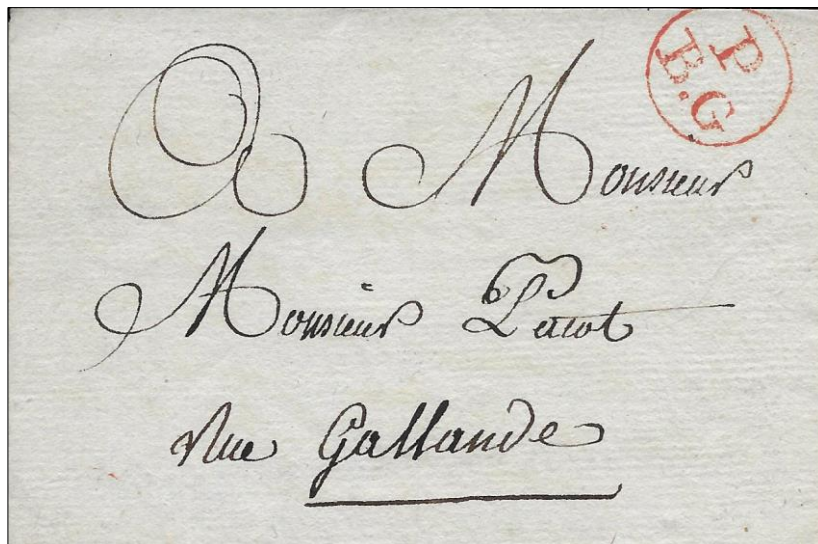 P
B.G
A Monsieur
Monsieur
rue Gallande